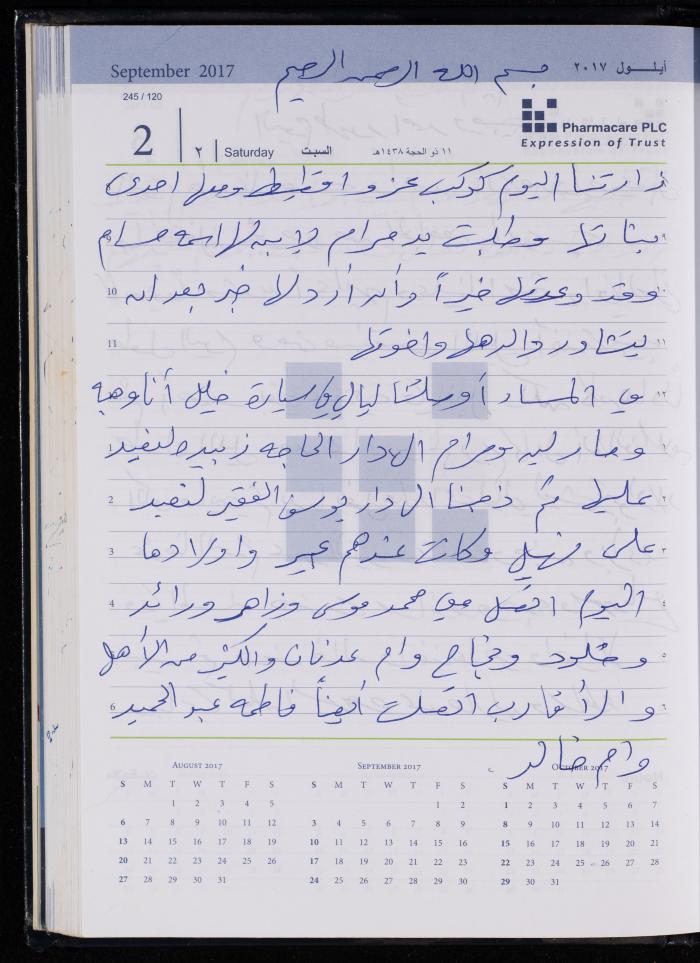 September 2017 بسم الله الرحمن الرحيم أيلـــول ٢٠١٧
245 / 120
2 ٢ Saturday السبت ١١ ذو الحجة ١٤٣٨هـ
Pharmacare PLC
Expression of Trust
زارتنا اليوم كوكب عزو ومعها احدى
بناتها وطلبت يد مرام لابنها اسمه حسام
10 وقد وعدتها خيراً وأن أرد لها خبر بعد ان ١٠
11 يتشاور والدها واخوتها ١١
في المساء أوصلتنا ليالي في سيارة خليل أنا وهبه ١٢
1 ومرام الى دار الحاجه زبيده لنعيد ١
2 عليها ثم ذهبنا الى دار يوسف الفقير لنعيد ٢
3 على وكانت عندهم عبير واولادها ٣
4 اليوم اتصل محمد موسى وزاهر ورائد ٤
وخلود ونجاح وام عدنان والكثير من الأهل ٥
6 والأقارب اتصلت أيضاً فاطمه عبد الحميد ٦
وام خالد
August 2017 September 2017 October 2017
S M T W T F S S M T W T F S S M T W T F S
1 2 3 4 5 1 2 1 2 3 4 5 6 7
6 7 8 9 10 11 12 3 4 5 6 7 8 9 8 9 10 11 12 13 14
13 14 15 16 17 18 19 10 11 12 13 14 15 16 15 16 17 18 19 20 21
20 21 22 23 24 25 26 17 18 19 20 21 22 23 22 23 24 25 26 27 28
27 28 29 30 31 24 25 26 27 28 29 30 29 30 31